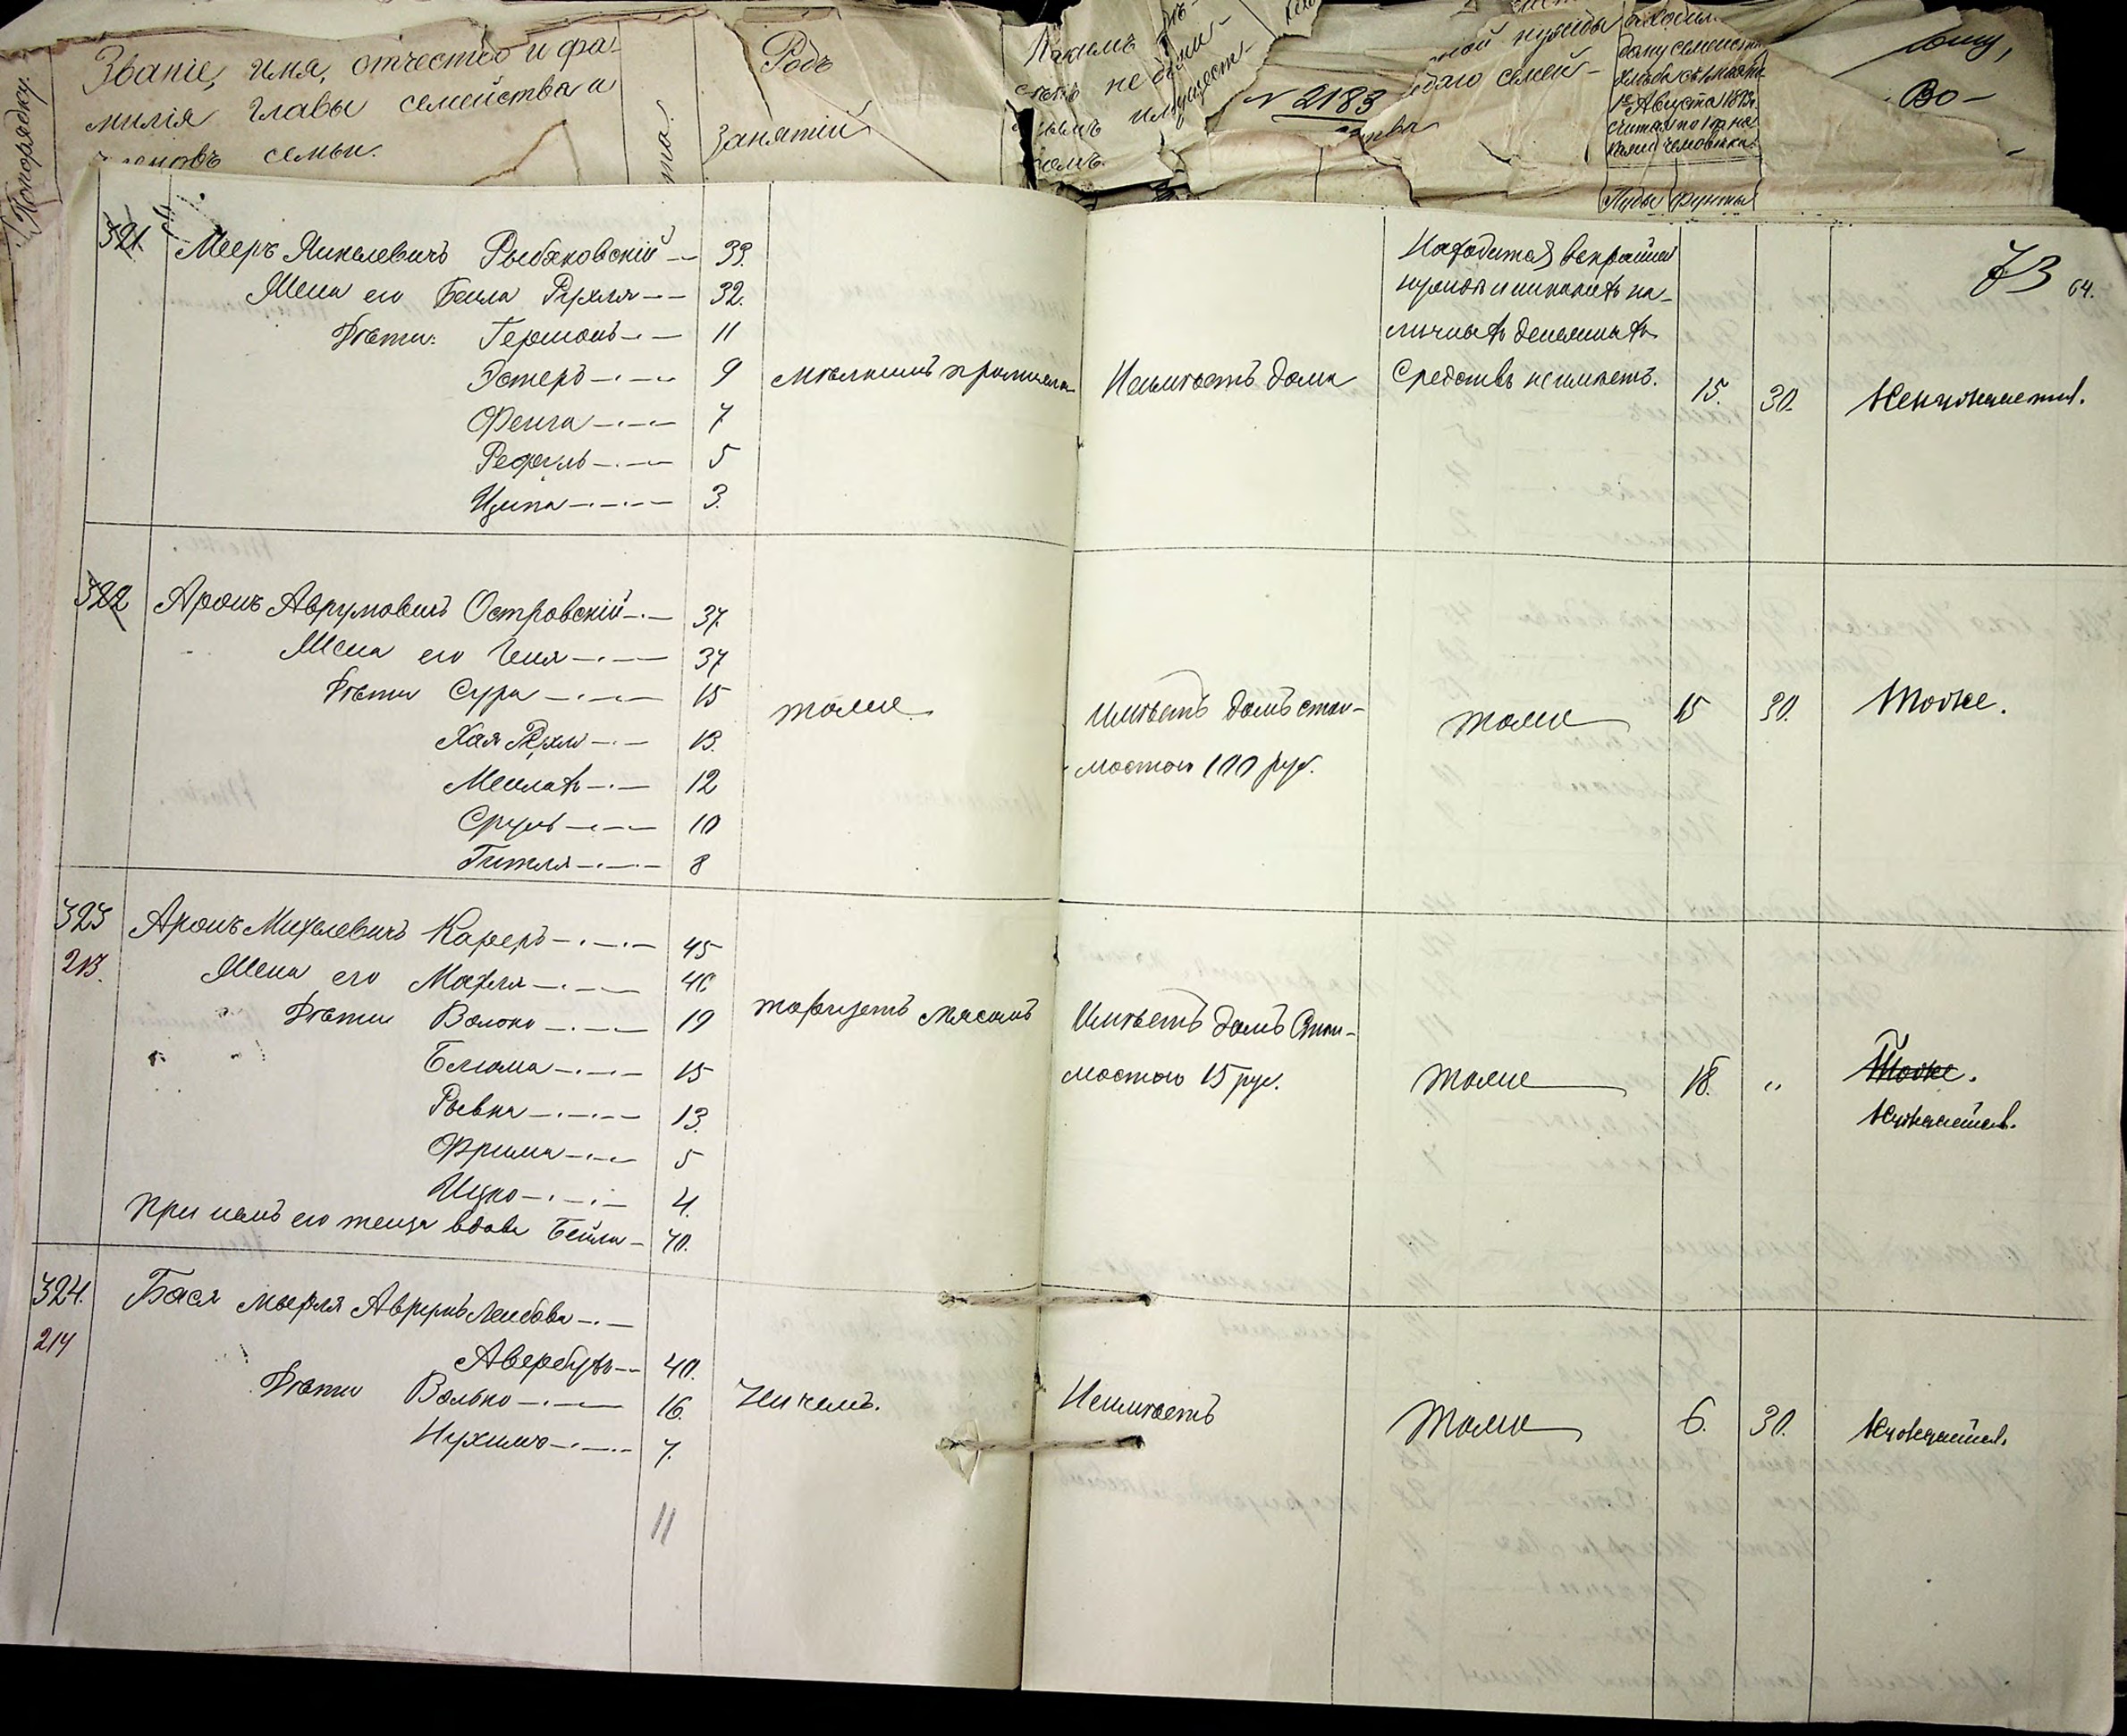 Попорядку.
Званіе, имя, отчество и фа-
милія главы семейства и
семьи.
Родъ
занятій
Какимъ
не
имущест-
№ 2183
нужды
семей-
дому семейст
1го Августа 1893г.
считая по 1 п на
Пуды
Фунты
Во-
73
64.
321.
Мееръ Янкелевичъ Рыбаковскій
39.
Жена его Бейла Рухля
32.
Дѣти: Гершонъ
11
Эстеръ
9
Фейга
7
Рефуль
5
Ципа
3.
мѣлкимъ промысло
Неимѣетъ дома
Находится вкрайней
нуждѣ и никакихъ на-
личныхъ денежныхъ
Средствъ неимѣетъ.
15.
30.
Ненуждается.
322
Аронъ Аврумовичъ Островскій
37.
Жена его Геня
37
Дѣти Сура
15
Хая Рухля
13.
Мейлахъ
12
Сруль
10
Гитля
8
тоже
Имѣетъ домъ стои-
мостью 100 руб.
тоже
15
30.
Тоже.
323
213.
Аронъ Михелевичъ Каферъ
45
Жена его Махля
40
Дѣти Волько
19
Блюма
15
Рывка
13.
Фрима
5
Ицко
4.
При немъ его теща вдова Бейла
70.
торгуетъ мясомъ
Имѣетъ домъ Стои-
мостью 15 руб.
тоже
18.
"
Тоже.
Нуждается.
324.
214
Бася Мырля Аврумъ Лейбова
Авербухъ
40.
Дѣти Волько
16.
Нухимъ
7.
Ничемъ.
Неимѣетъ
Тоже
6.
30.
Нуждается.
11